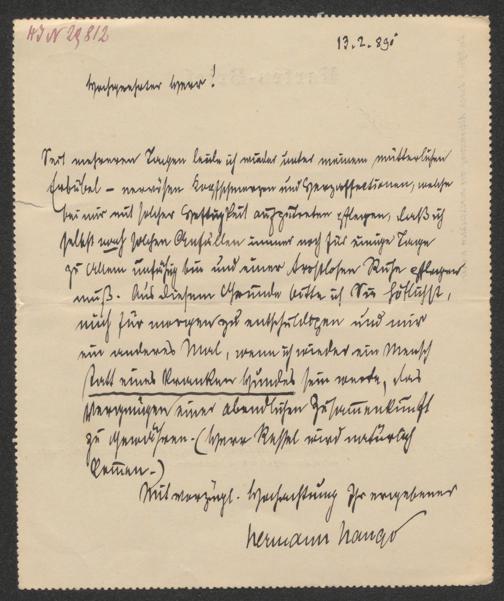 HIN 29812
13.2.890
Hochgeehrter Herr!
Seit mehreren Tagen leide ich wieder unter meinem mütterlichen
Erbübel – nervösen Kopfschmerzen und Herzaffectionen, welche
bei mir mit solcher Heftigkeit aufzutreten pflegen, daß ich
selbst nach solchen Anfällen immer noch für einige Tage
zu Allem unfähig bin und einer trostlosen Ruhe pflegen
muß. Aus diesem Grunde bitte ich Sie höflichst,
mich für morgen zu entschuldigen und mir
ein anderes Mal, wenn ich wieder ein Mensch
statt eines kranken Hundes sein werde, das
Vergnügen einer abendlichen Zusammenkunft
zu gewähren. (Herr Kessel wird natürlich
kommen.)
Mit vorzügl. Hochachtung Ihr ergebener
Hermann Hango